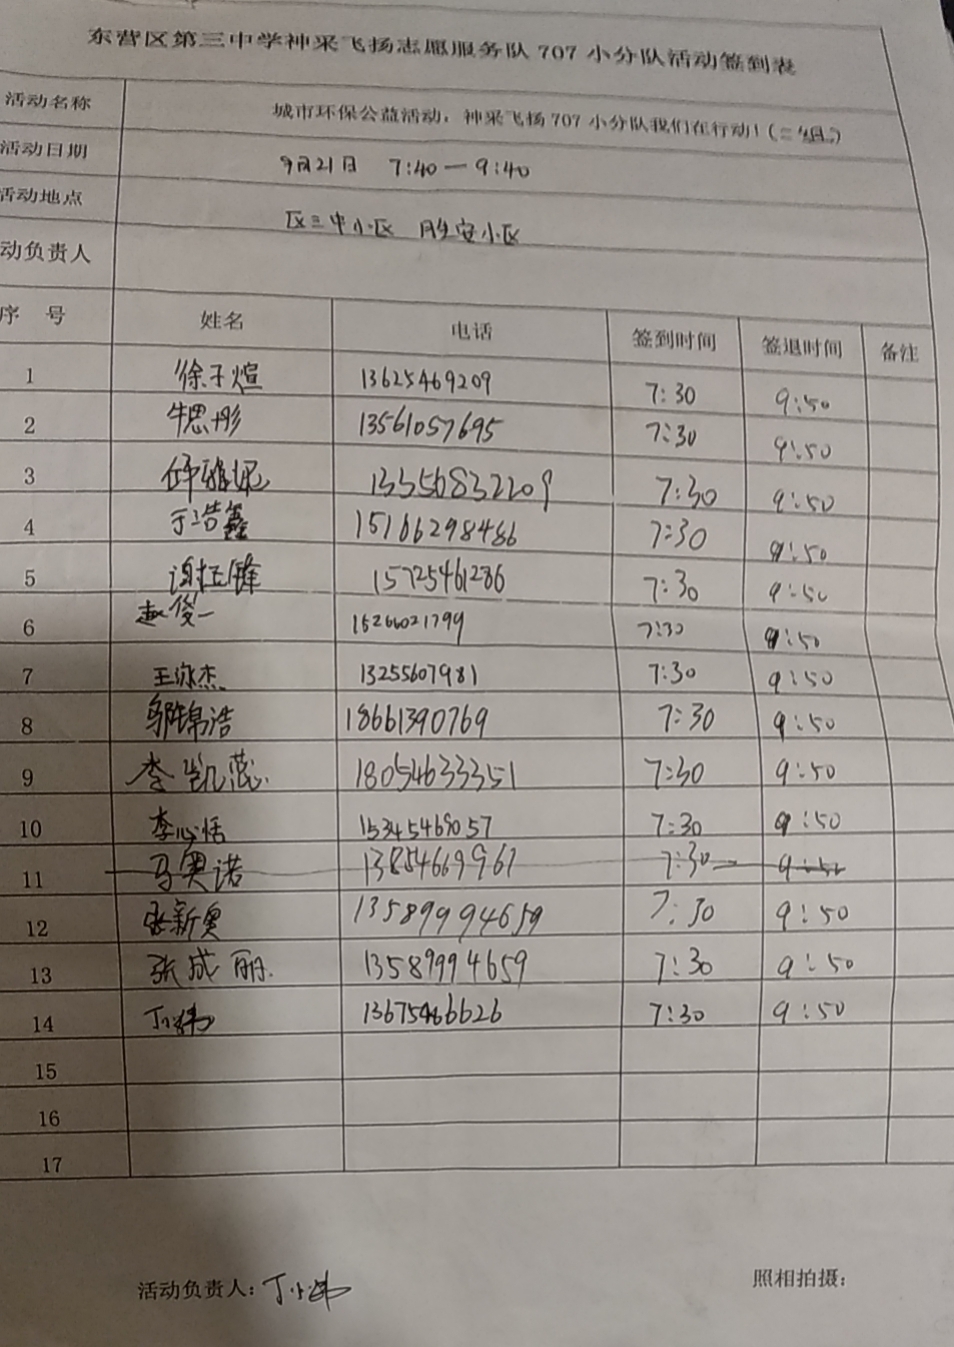 东营区第三中学神采飞扬志愿服务队 707 小分队活动签到表
活动名称 城市环保公益活动，神采飞扬 707 小分队我们在行动！(二组)
活动日期 9月21日 7:40—9:40
活动地点 区三中小区 胜安小区
动负责人
序 号 姓名 电话 签到时间 签退时间 备注
1 徐子煊 13625469209 7:30 9:50
2 牛思彤 13561057695 7:30 9:50
3 13356832209 7:30 9:50
4 于浩鑫 15166298486 7:30 9:50
5 15725461286 7:30 9:50
6 赵俊一 15266021799 7:30 9:50
7 王泳杰 13255607981 7:30 9:50
8 邹锦浩 18661390769 7:30 9:50
9 李凯蕊 18054633351 7:30 9:50
10 李心恬 15345469057 7:30 9:50
11 马奥诺 13854669961 7:30 9:50
12 张新奥 13589994659 7:30 9:50
13 张成丽 13589994659 7:30 9:50
14 丁小伟 13675466626 7:30 9:50
15
16
17
活动负责人：丁小伟 照相拍摄：